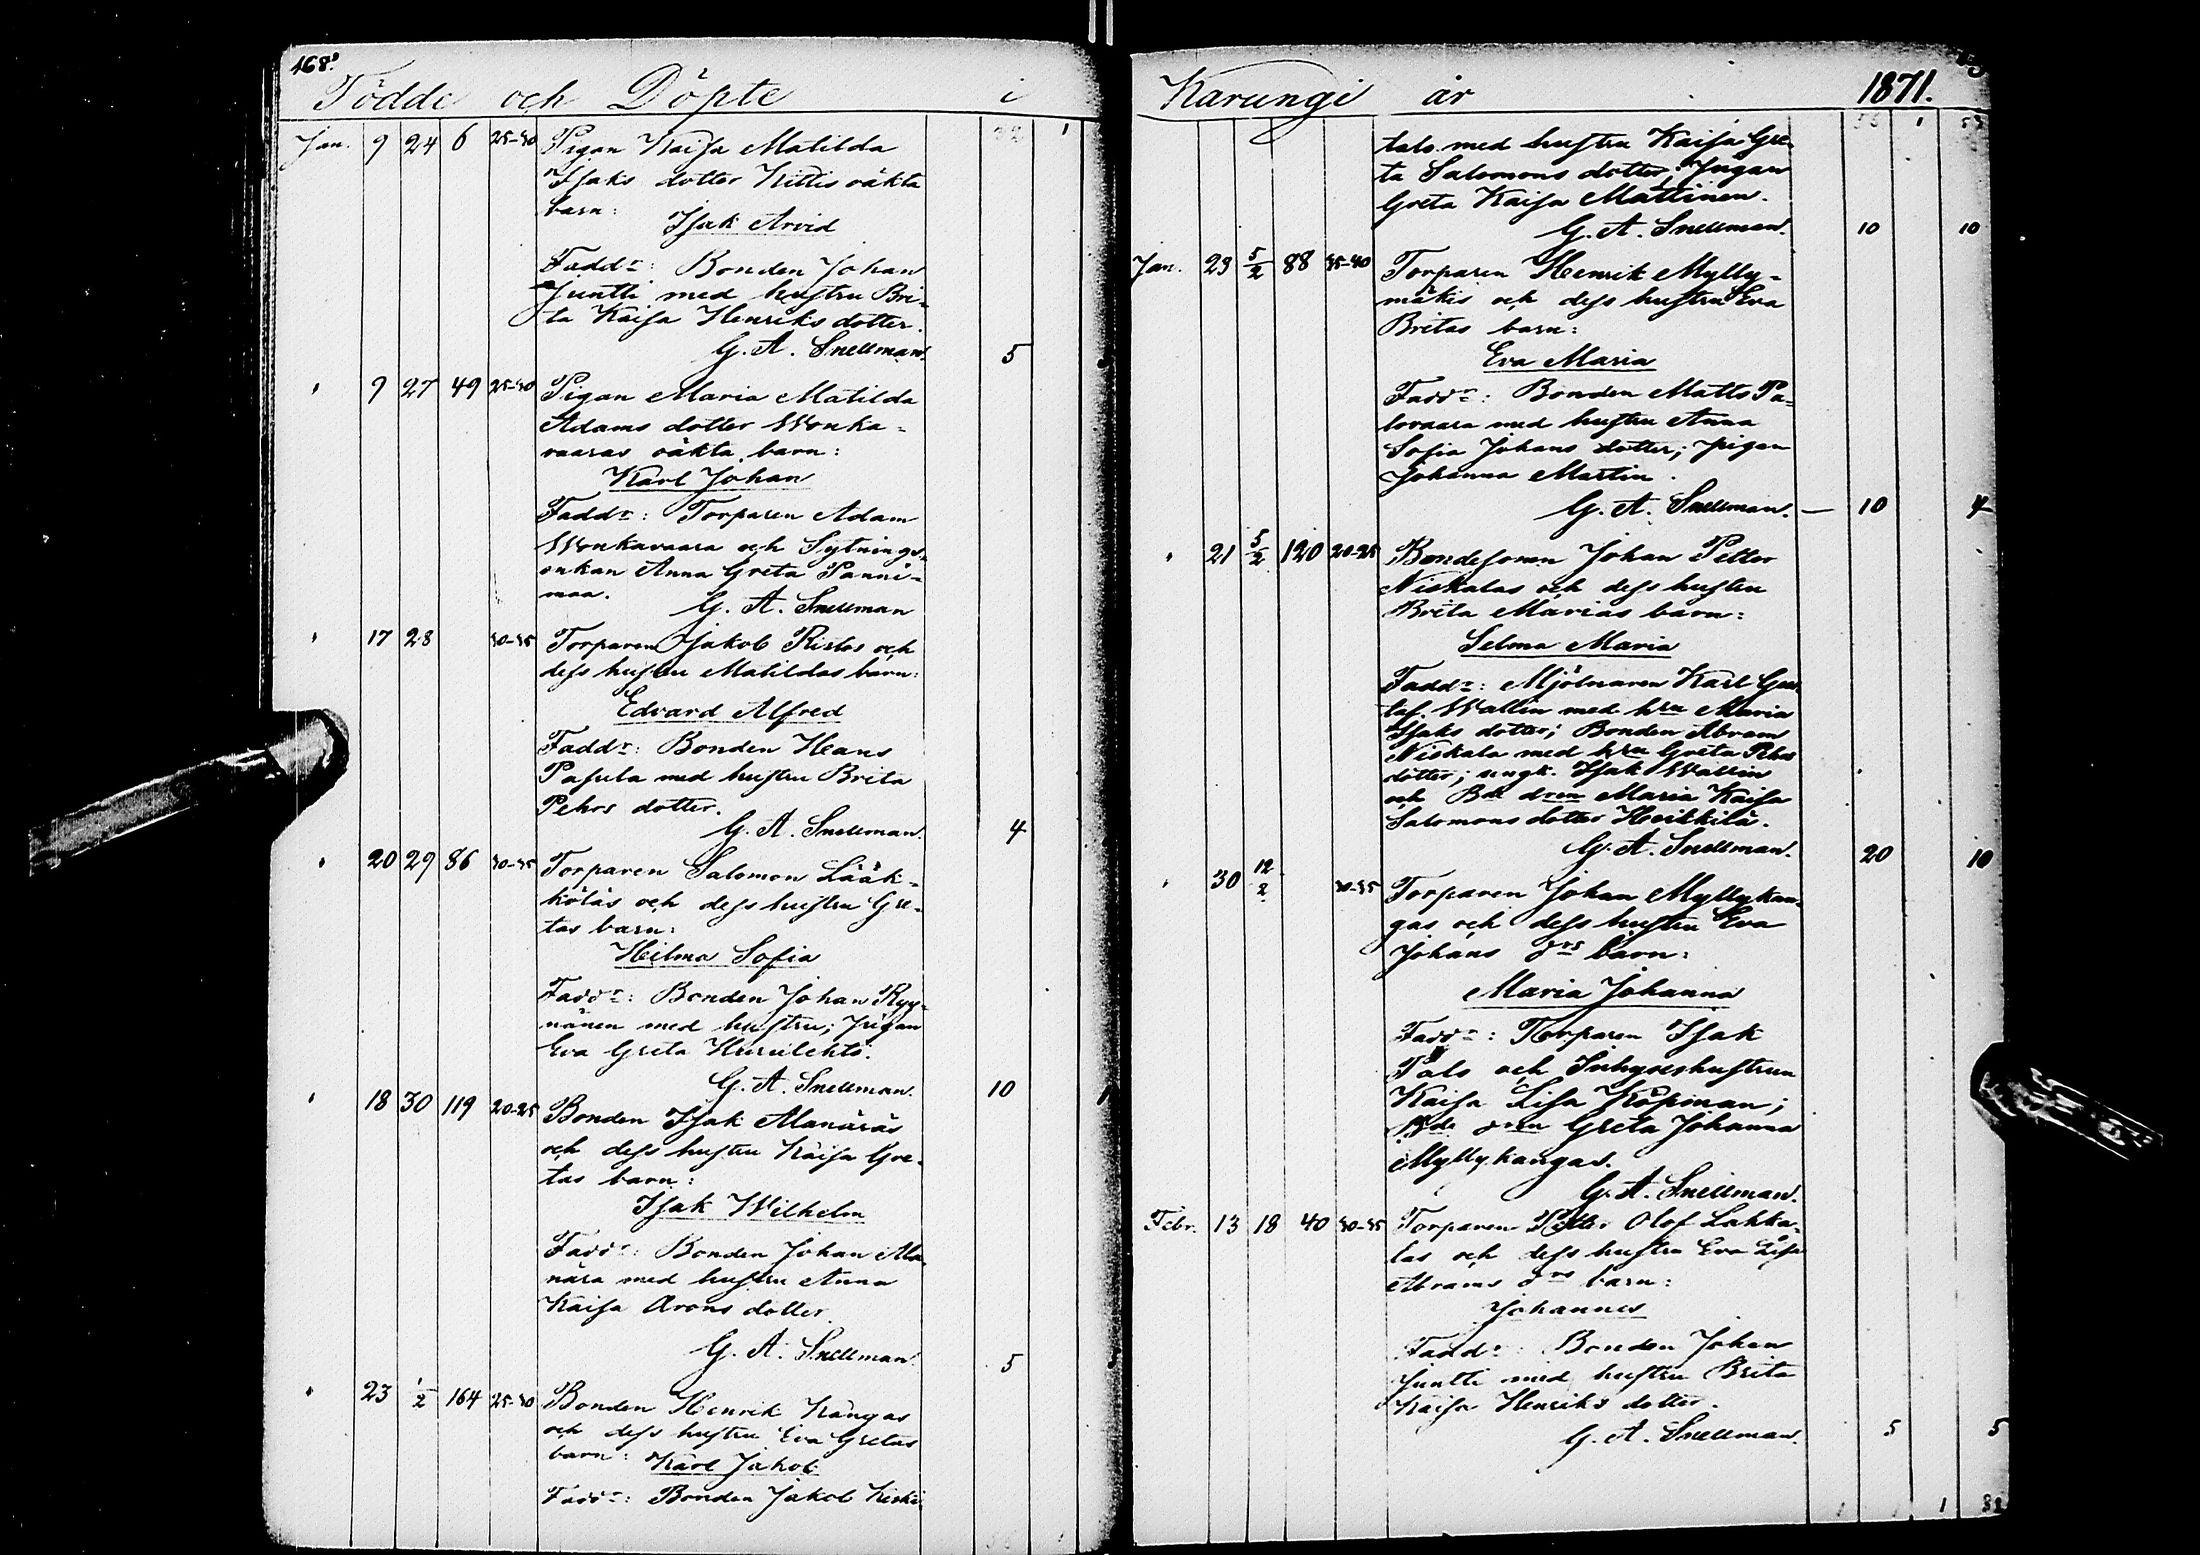 168.
Födde och Döpte i
Jan. 9 24 6 25-30 Pigan Kaisa Matilda
Isaks dotter Kittis oäkta
barn:
Isak Arvid
Fadd:r: Bonden Johan
Juntti med hustru Bri-
ta Kaisa Henriks dotter.
G. A. Snellman. 5
" 9 27 49 25-30 Pigan Maria Matilda
Adams dotter Wonka-
vaaras oäkta barn:
Karl Johan
Fadd:r: Torparen Adam
Wonkavaara och Sytnings-
enkan Anna Greta Panni-
maa.
G. A. Snellman
" 17 28 30-35 Torparen Jakob Ristos och
dess hustru Matildas barn:
Edvard Alfred
Fadd:r: Bonden Hans
Pasula med hustru Brita
Pehrs dotter.
G. A. Snellman. 4
" 20 29 86 30-35 Torparen Salomon Lääk-
köläs och dess hustru Gre-
tas barn:
Hilma Sofia
Fadd:r: Bonden Johan Ryy-
nänen med hustru; pigan
Eva Greta
G. A. Snellman. 10
" 18 30 119 20-25 Bonden Isak Alanäräs
och dess hustru Kaisa Gre-
tas barn:
Isak Wilhelm
Fadd:r: Bonden Johan Ala-
nära med hustru Anna
Kaisa Arons dotter.
G. A. Snellman. 5
" 23 1/2 164 25-30 Bonden Henrik Kangas
och dess hustru Eva Gretas
barn: Karl Jakob
Fadd:r: Bonden Jakob Keski
Karungi år 1871.
talo med hustru Kaisa Gre-
ta Salomons dotter; Pigan
Greta Kaisa Mattinen.
G. A. Snellman. 10 10
Jan. 29 5/2 88 35-40 Torparen Henrik Mylly-
mäkis och dess hustru Eva
Britas barn:
Eva Maria
Fadd:r: Bonden Matts Pa-
lovaara med hustru Anna
Sofia Johans dotter; pigan
Johanna Martin.
G. A. Snellman. — 10 4
" 21 5/2 120 20-25 Bondesonen Johan Petter
Niskalas och dess hustru
Brita Marias barn:
Selma Maria
Fadd:r: Mjölnaren Karl Gus-
taf Wallin med hru Maria
Isaks dotter; Bonden Abram
Niskala med hru Greta Pehrs
dotter; ungk. Isak Wallin
och Bde dren Maria Kaisa
Salomons dotter Heikkilä.
G. A. Snellman. 20 10
" 30 12/2 30-35 Torparen Johan Myllykan-
gas och dess hustru Eva
Johans drs barn:
Maria Johanna
Fadd:r: Torparen Isak
Palo och Inhyseshustrun
Kaisa Lisa Köpman;
Bde dren Greta Johanna
Myllykangas.
G. A. Snellman.
Febr. 13 18 40 30-35 Torparen Petter Olof Lahka-
las och dess hustru Eva Lisa
Abrams drs barn:
Johannes
Fadd:r: Bonden Johan
Juntti med hustru Brita
Kaisa Henriks dotter.
G. A. Snellman. 5 5